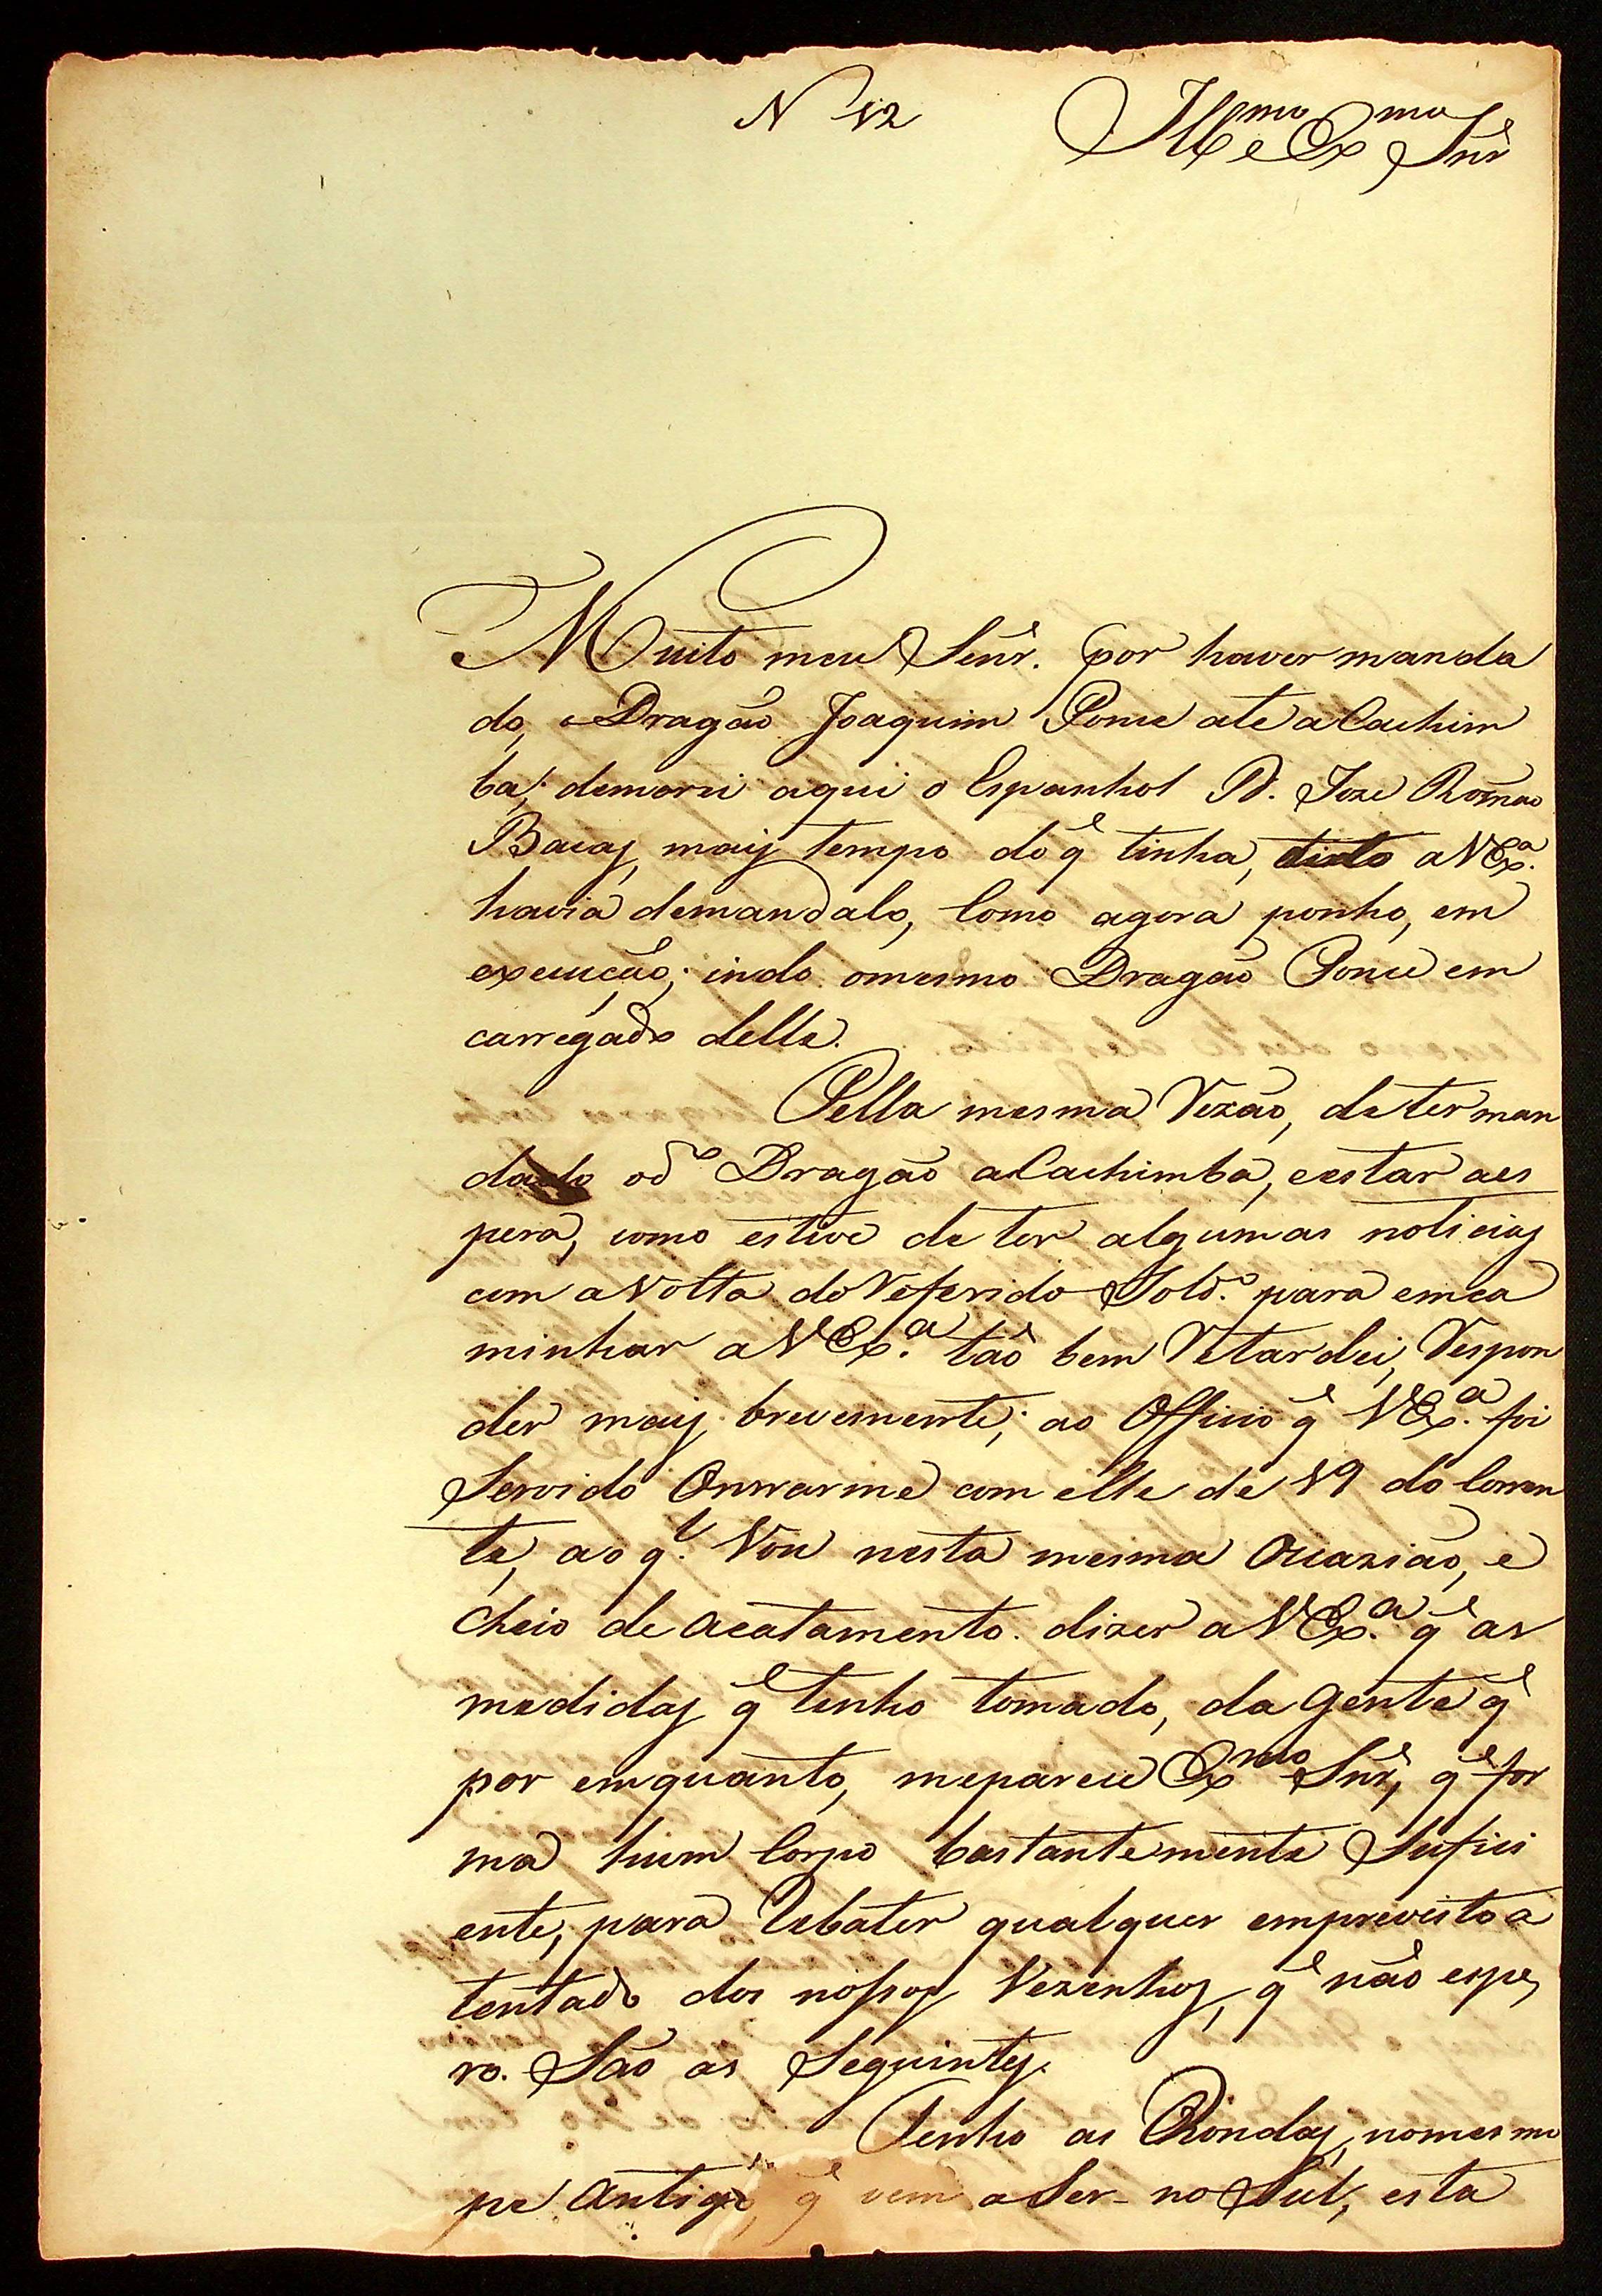 N 12 Ill.mo e Ex.mo Snr
Muito meu Senr. por haver manda
do, Dragão Joaquim Ponce ate a Cachim
ba; demorei aqui o Espanhol D. Joze Romão
Bacas, mais tempo do q̃ tinha, dicto a V Ex.a
havia de mandalo, como agora ponho, em
execução; indo o mesmo Dragão Ponce em
carregado delle.
Pella mesma Rezão, de ter man
dado o d.o Dragão a Cachimba, e estar a es
pera, como estive de ter algumas noticias
com a Volta do Referido Sold.o para emca
minhar a V Ex.a tão bem Retardei, Respon
der mais brevemente; ao Officio q̃ V Ex.a foi
Servido Onrrarme com elle de 19 do Corren
te, ao q.l Vou nesta mesma Occazião, e
Cheio de acatamento. dizer a V Ex.a q̃ as
medidas q̃ tenho tomado, da Gente q̃
por emquanto, me pareceu Ex.mo Snr, q̃ for
ma hum Corpo bastantemente Sufici
ente, para Rebater qualquer emprevisto a
tentado dos nossos Vezenhos, q̃ não espe
ro. São as Seguintes.
Tenho as Rondas, no mesmo
pe antigo, q̃ vem a Ser - no Sul, esta